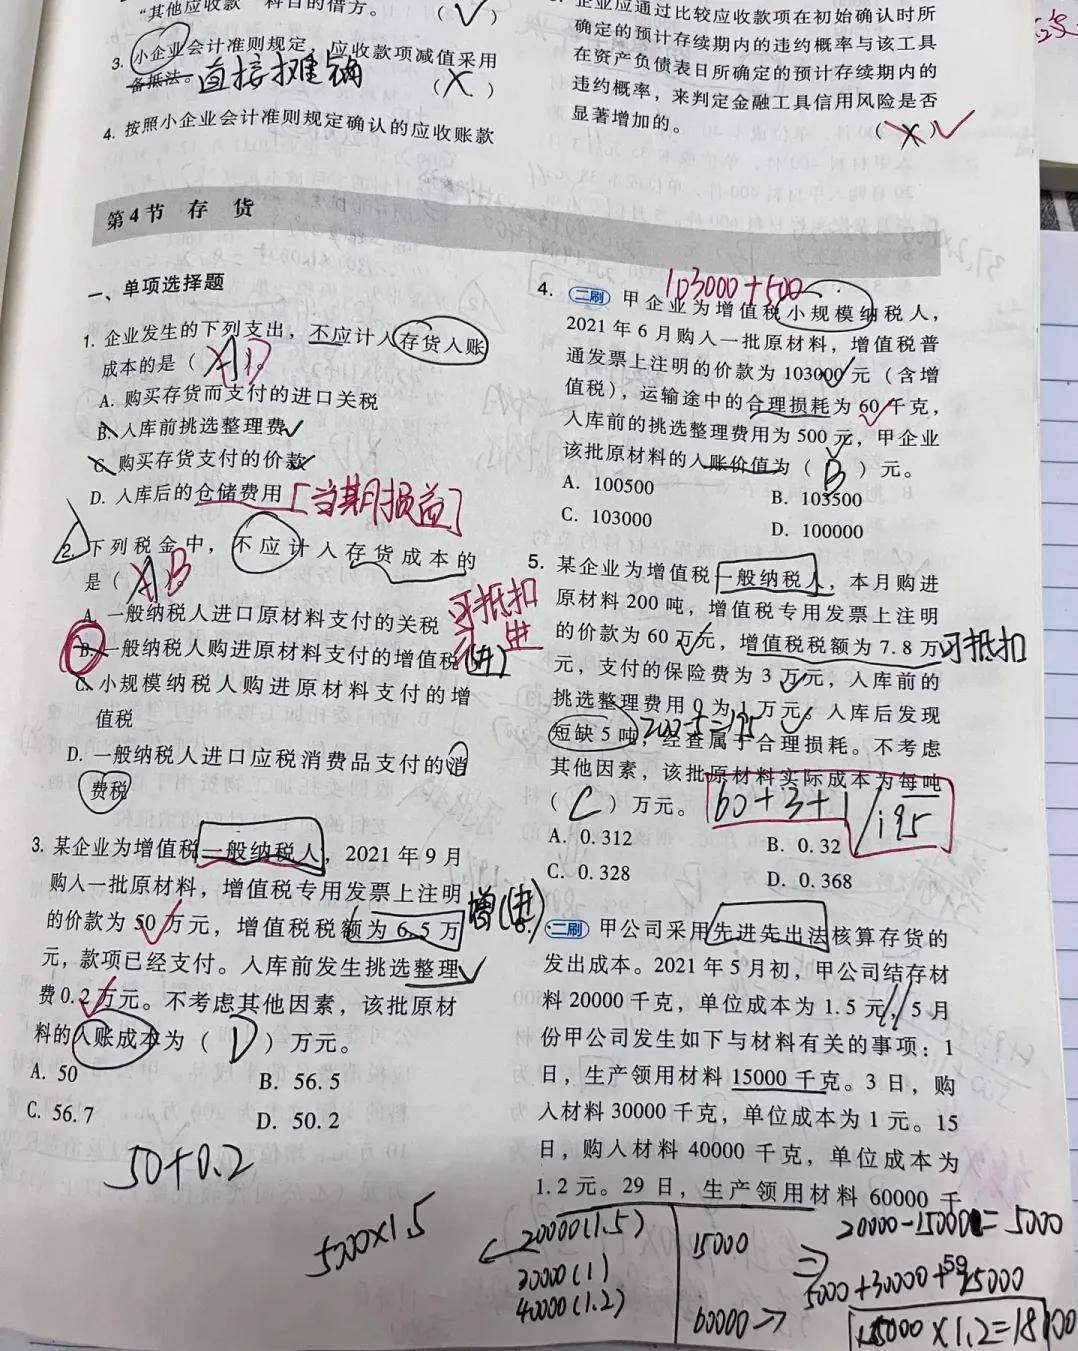 “其他应收款”科目的借方。 （√）
3. 小企业会计准则规定，应收款项减值采用
备抵法。直接摊销 （X）
4. 按照小企业会计准则规定确认的应收账款
企业应通过比较应收款项在初始确认时所
确定的预计存续期内的违约概率与该工具
在资产负债表日所确定的预计存续期内的
违约概率，来判定金融工具信用风险是否
显著增加的。 （X）
第4节 存 货
一、单项选择题
1. 企业发生的下列支出，不应计入存货入账
成本的是（ A D）。
A. 购买存货而支付的进口关税
B. 入库前挑选整理费
C. 购买存货支付的价款
D. 入库后的仓储费用［当期损益］
2. 下列税金中，不应计入存货成本的
是（ A B
A. 一般纳税人进口原材料支付的关税
可抵扣
B. 一般纳税人购进原材料支付的增值税（进）
进
C. 小规模纳税人购进原材料支付的增
值税
D. 一般纳税人进口应税消费品支付的消
费税
3. 某企业为增值税一般纳税人，2021年9月
购入一批原材料，增值税专用发票上注明
的价款为50万元，增值税税额为6.5万 增（进）
元，款项已经支付。入库前发生挑选整理
费0.2万元。不考虑其他因素，该批原材
料的入账成本为（ D ）万元。
A. 50
B. 56.5
C. 56.7
D. 50.2
50+0.2
103000+500
4. 二刷 甲企业为增值税小规模纳税人，
2021年6月购入一批原材料，增值税普
通发票上注明的价款为103000元（含增
值税），运输途中的合理损耗为60千克，
入库前的挑选整理费用为500元，甲企业
该批原材料的入账价值为（ B ）元。
A. 100500
B. 103500
C. 103000
D. 100000
5. 某企业为增值税一般纳税人，本月购进
原材料200吨，增值税专用发票上注明
的价款为60万元，增值税税额为7.8万 可抵扣
元，支付的保险费为3万元，入库前的
挑选整理费用0为1万元。入库后发现
200-5=195
短缺5吨，经查属于合理损耗。不考虑
其他因素，该批原材料实际成本为每吨
（ C ）万元。 60+3+1/195
A. 0.312
B. 0.32
C. 0.328
D. 0.368
6. 二刷 甲公司采用先进先出法核算存货的
发出成本。2021年5月初，甲公司结存材
料20000千克，单位成本为1.5元，5月
份甲公司发生如下与材料有关的事项：1
日，生产领用材料15000千克。3日，购
入材料30000千克，单位成本为1元。15
日，购入材料40000千克，单位成本为
1.2元。29日，生产领用材料60000千
5000×1.5
20000(1.5)
30000(1)
40000(1.2)
15000
60000
20000-15000=5000
5000+30000+25000
15000×1.2=18000
59